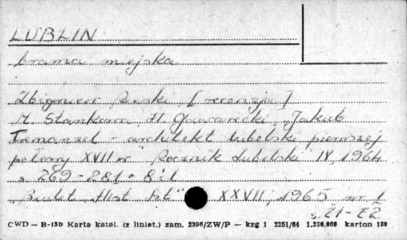 LUBLIN
brama miejska
Zbigniew [recenzja]
M. Stankowa, H. Gawarecki, Jakub
Emanuel - architekt lubelski pierwszej
połowy XVII w. Rocznik Lubelski IV, 1964
s. 269-281
Biulet. Hist. Szt. XXVII, 1965 nr 1
s. 21-22
CWD — B-15b Karta katal. (z liniet.) zam. 2396/ZW/P — kzg 1 2251/64 karton